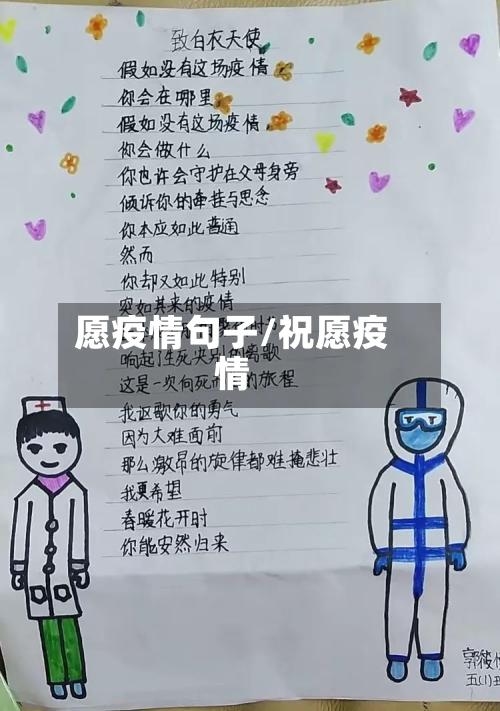 致白衣天使
假如没有这场疫情
你会在哪里
假如没有这场疫情
你会做什么
你也许会守护在父母身旁
倾诉你的牵挂与思念
你本应如此普通
然而
你却又如此特别
突如其来的疫情
愿疫情句子/祝愿疫
情
响起了生死诀别的旁歌
这是一次向死而的旅程
我讴歌你的勇气
因为大难面前
那么激昂的旋律都难掩悲壮
我更希望
春暖花开时
你能安然归来
五(1)